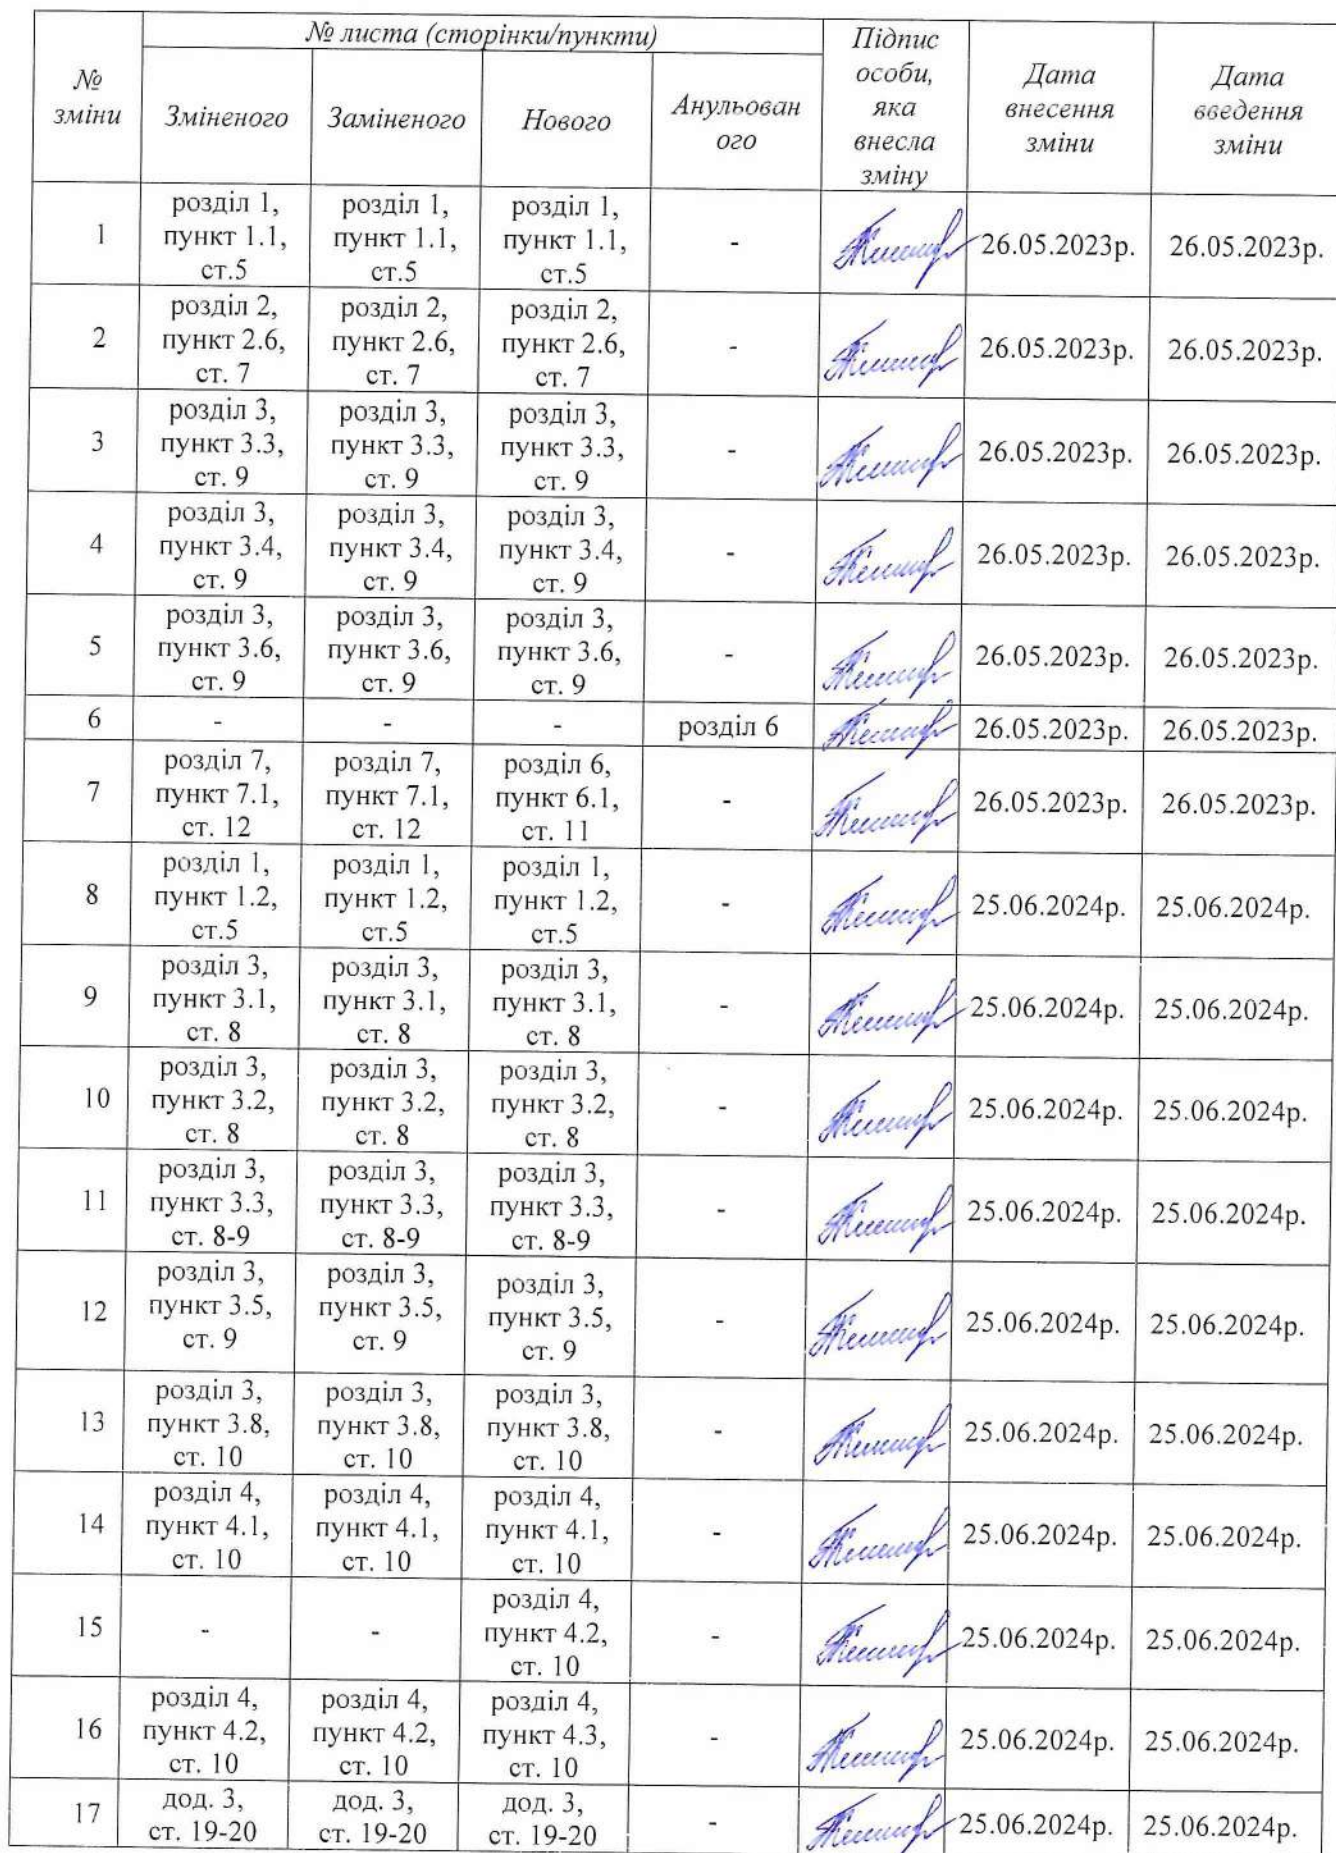 № зміни
№ листа (сторінки/пункти)
Зміненого
Заміненого
Нового
Анульован
ого
Підпис
особи,
яка
внесла
зміну
Дата
внесення
зміни
Дата
введення
зміни
1
розділ 1,
пункт 1.1,
ст.5
розділ 1,
пункт 1.1,
ст.5
розділ 1,
пункт 1.1,
ст.5
-
26.05.2023р.
26.05.2023р.
2
розділ 2,
пункт 2.6,
ст. 7
розділ 2,
пункт 2.6,
ст. 7
розділ 2,
пункт 2.6,
ст. 7
-
26.05.2023р.
26.05.2023р.
3
розділ 3,
пункт 3.3,
ст. 9
розділ 3,
пункт 3.3,
ст. 9
розділ 3,
пункт 3.3,
ст. 9
-
26.05.2023р.
26.05.2023р.
4
розділ 3,
пункт 3.4,
ст. 9
розділ 3,
пункт 3.4,
ст. 9
розділ 3,
пункт 3.4,
ст. 9
-
26.05.2023р.
26.05.2023р.
5
розділ 3,
пункт 3.6,
ст. 9
розділ 3,
пункт 3.6,
ст. 9
розділ 3,
пункт 3.6,
ст. 9
-
26.05.2023р.
26.05.2023р.
6
-
-
-
розділ 6
26.05.2023р.
26.05.2023р.
7
розділ 7,
пункт 7.1,
ст. 12
розділ 7,
пункт 7.1,
ст. 12
розділ 6,
пункт 6.1,
ст. 11
-
26.05.2023р.
26.05.2023р.
8
розділ 1,
пункт 1.2,
ст.5
розділ 1,
пункт 1.2,
ст.5
розділ 1,
пункт 1.2,
ст.5
-
25.06.2024р.
25.06.2024р.
9
розділ 3,
пункт 3.1,
ст. 8
розділ 3,
пункт 3.1,
ст. 8
розділ 3,
пункт 3.1,
ст. 8
-
25.06.2024р.
25.06.2024р.
10
розділ 3,
пункт 3.2,
ст. 8
розділ 3,
пункт 3.2,
ст. 8
розділ 3,
пункт 3.2,
ст. 8
-
25.06.2024р.
25.06.2024р.
11
розділ 3,
пункт 3.3,
ст. 8-9
розділ 3,
пункт 3.3,
ст. 8-9
розділ 3,
пункт 3.3,
ст. 8-9
-
25.06.2024р.
25.06.2024р.
12
розділ 3,
пункт 3.5,
ст. 9
розділ 3,
пункт 3.5,
ст. 9
розділ 3,
пункт 3.5,
ст. 9
-
25.06.2024р.
25.06.2024р.
13
розділ 3,
пункт 3.8,
ст. 10
розділ 3,
пункт 3.8,
ст. 10
розділ 3,
пункт 3.8,
ст. 10
-
25.06.2024р.
25.06.2024р.
14
розділ 4,
пункт 4.1,
ст. 10
розділ 4,
пункт 4.1,
ст. 10
розділ 4,
пункт 4.1,
ст. 10
-
25.06.2024р.
25.06.2024р.
15
-
-
розділ 4,
пункт 4.2,
ст. 10
-
25.06.2024р.
25.06.2024р.
16
розділ 4,
пункт 4.2,
ст. 10
розділ 4,
пункт 4.2,
ст. 10
розділ 4,
пункт 4.3,
ст. 10
-
25.06.2024р.
25.06.2024р.
17
дод. 3,
ст. 19-20
дод. 3,
ст. 19-20
дод. 3,
ст. 19-20
-
25.06.2024р.
25.06.2024р.